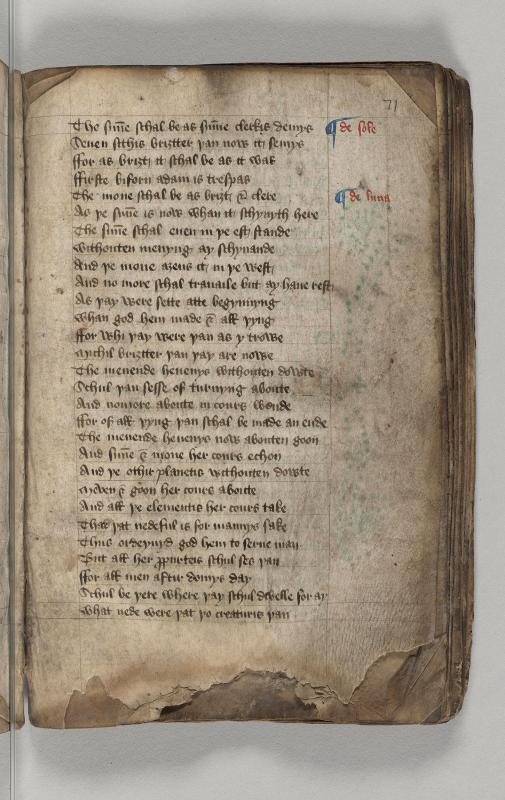 71
The sune schal be as sune clerkis demys
¶ de sole
Seuen sithis briztter þan now it semys
ffor as brizt it schal be as it was
ffirste biforn adam is trespas
The mone schal be as brizt & clere
¶ de luna
As þe sune is now whan it schynyth here
The sune schal euen in þe est stande
Withouten menyng ay schynande
And þe mone azens it in þe west
And no more schal trauaile but ay haue rest
As þay were sette atte begynnyng
Whan god hem made & all þyng
ffor whi þay were þan as y trowe
Mychil briztter þan þay are nowe
The meuende heuenys withouten dowte
Schul þan sesse of turnyng aboute
And nomore aboute in cours wende
ffor of all þyng þan schal be made an ende
The meuende heuenys now abouten goon
And sune & mone her cours echon
And þe othir planetis withouten dowte
Meuen & goon her cours aboute
And all þe elementis her cours take
That þat nedeful is for mannys sake
Thus ordeynyd god hem to serue man
But all her ꝑpurteis schul ses þan
ffor all men aftir domys day
Schul be þere where þay schul dwelle for ay
What nede were þat þo creaturis þan